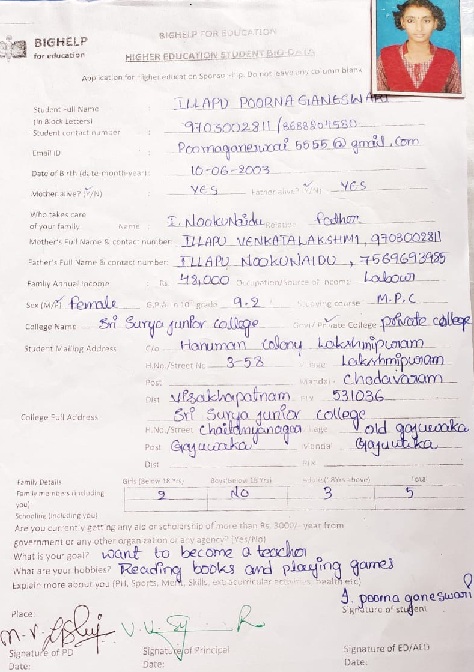 BIGHELP FOR EDUCATION
BIGHELP
for education
HIGHER EDUCATION STUDENT BIO-DATA
Application for higher education Sponsorship. Do not leave any column blank
Student Full Name : ILLAPU POORNA GANESWARI
(In Block Letters)
Student contact number : 9703002811 /
Email ID : Poornaganeswari 5555@gmail.com
Date of Birth (date-month-year): 10-06-2003
Mother alive? (Y/N) YES Father alive? (Y/N) YES
Who takes care
of your family Name : I. NookuNaidu Relation Father
Mother's Full Name & contact number: ILLAPU VENKATALAKSHMI, 970300281
Father's Full Name & contact number: ILLAPU NOOKUNAIDU, 7569693985
Family Annual Income : Rs 78,000 Occupation/Source of Income Labour
Sex (M/F) Female G.P.A in 10th grade 9.2 Studying course M.P.C
College Name : Sri Surya junior college Govt/ Private College private college
Student Mailing Address C/o Hanuman colony Lakshmipuram
H.No./Street No 3-58 Village Lakshmipuram
Post Mandal Chodavaram
Dist Visakhapatnam PIN 531036
College Full Address Sri Surya junior college
H.No./Street Village old gajuwaka
Post Gajuwaka Mandal Gajuwaka
Dist PIN
Family Details Girls (Below 18 Yrs) Boys (Below 18 Yrs) Total
Family members (including you) 2 NO 3 5
Schooling (including you)
Are you currently getting any aid or scholarship of more than Rs. 3000/- year from
government or any other organization or any agency? (Yes/No)
What is your goal? want to become a teacher
What are your hobbies? Reading books and playing games
Explain more about you (PH, Sports, Merit, Skills, extracurricular activities, health etc)
I. poorna ganeswari
Place: Signature of student
Signature of PD Signature of Principal Signature of ED/AED
Date: Date: Date: